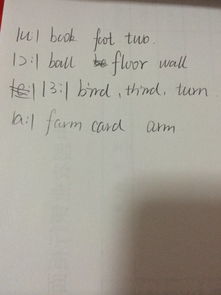 |u:| book foot two.
|ɔ:| ball floor wall
|3:| bird, third, turn
|a:| farm card arm